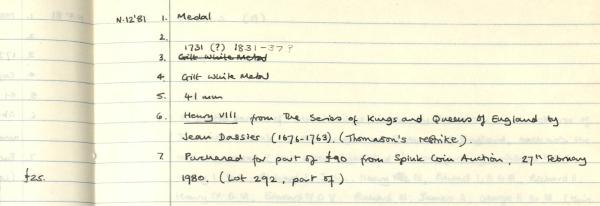 N.12'81 1. Medal
2.
1731 (?) 1831-37?
3. Gilt White Metal
4. Gilt White Metal
5. 41 mm
6. Henry VIII from the Series of Kings and Queens of England by
Jean Dassier (1676-1763). (Thomason's restrike).
7. Purchased for part of £90 from Spink Coin Auction, 27th February
£25. 1980. (Lot 292, part of)